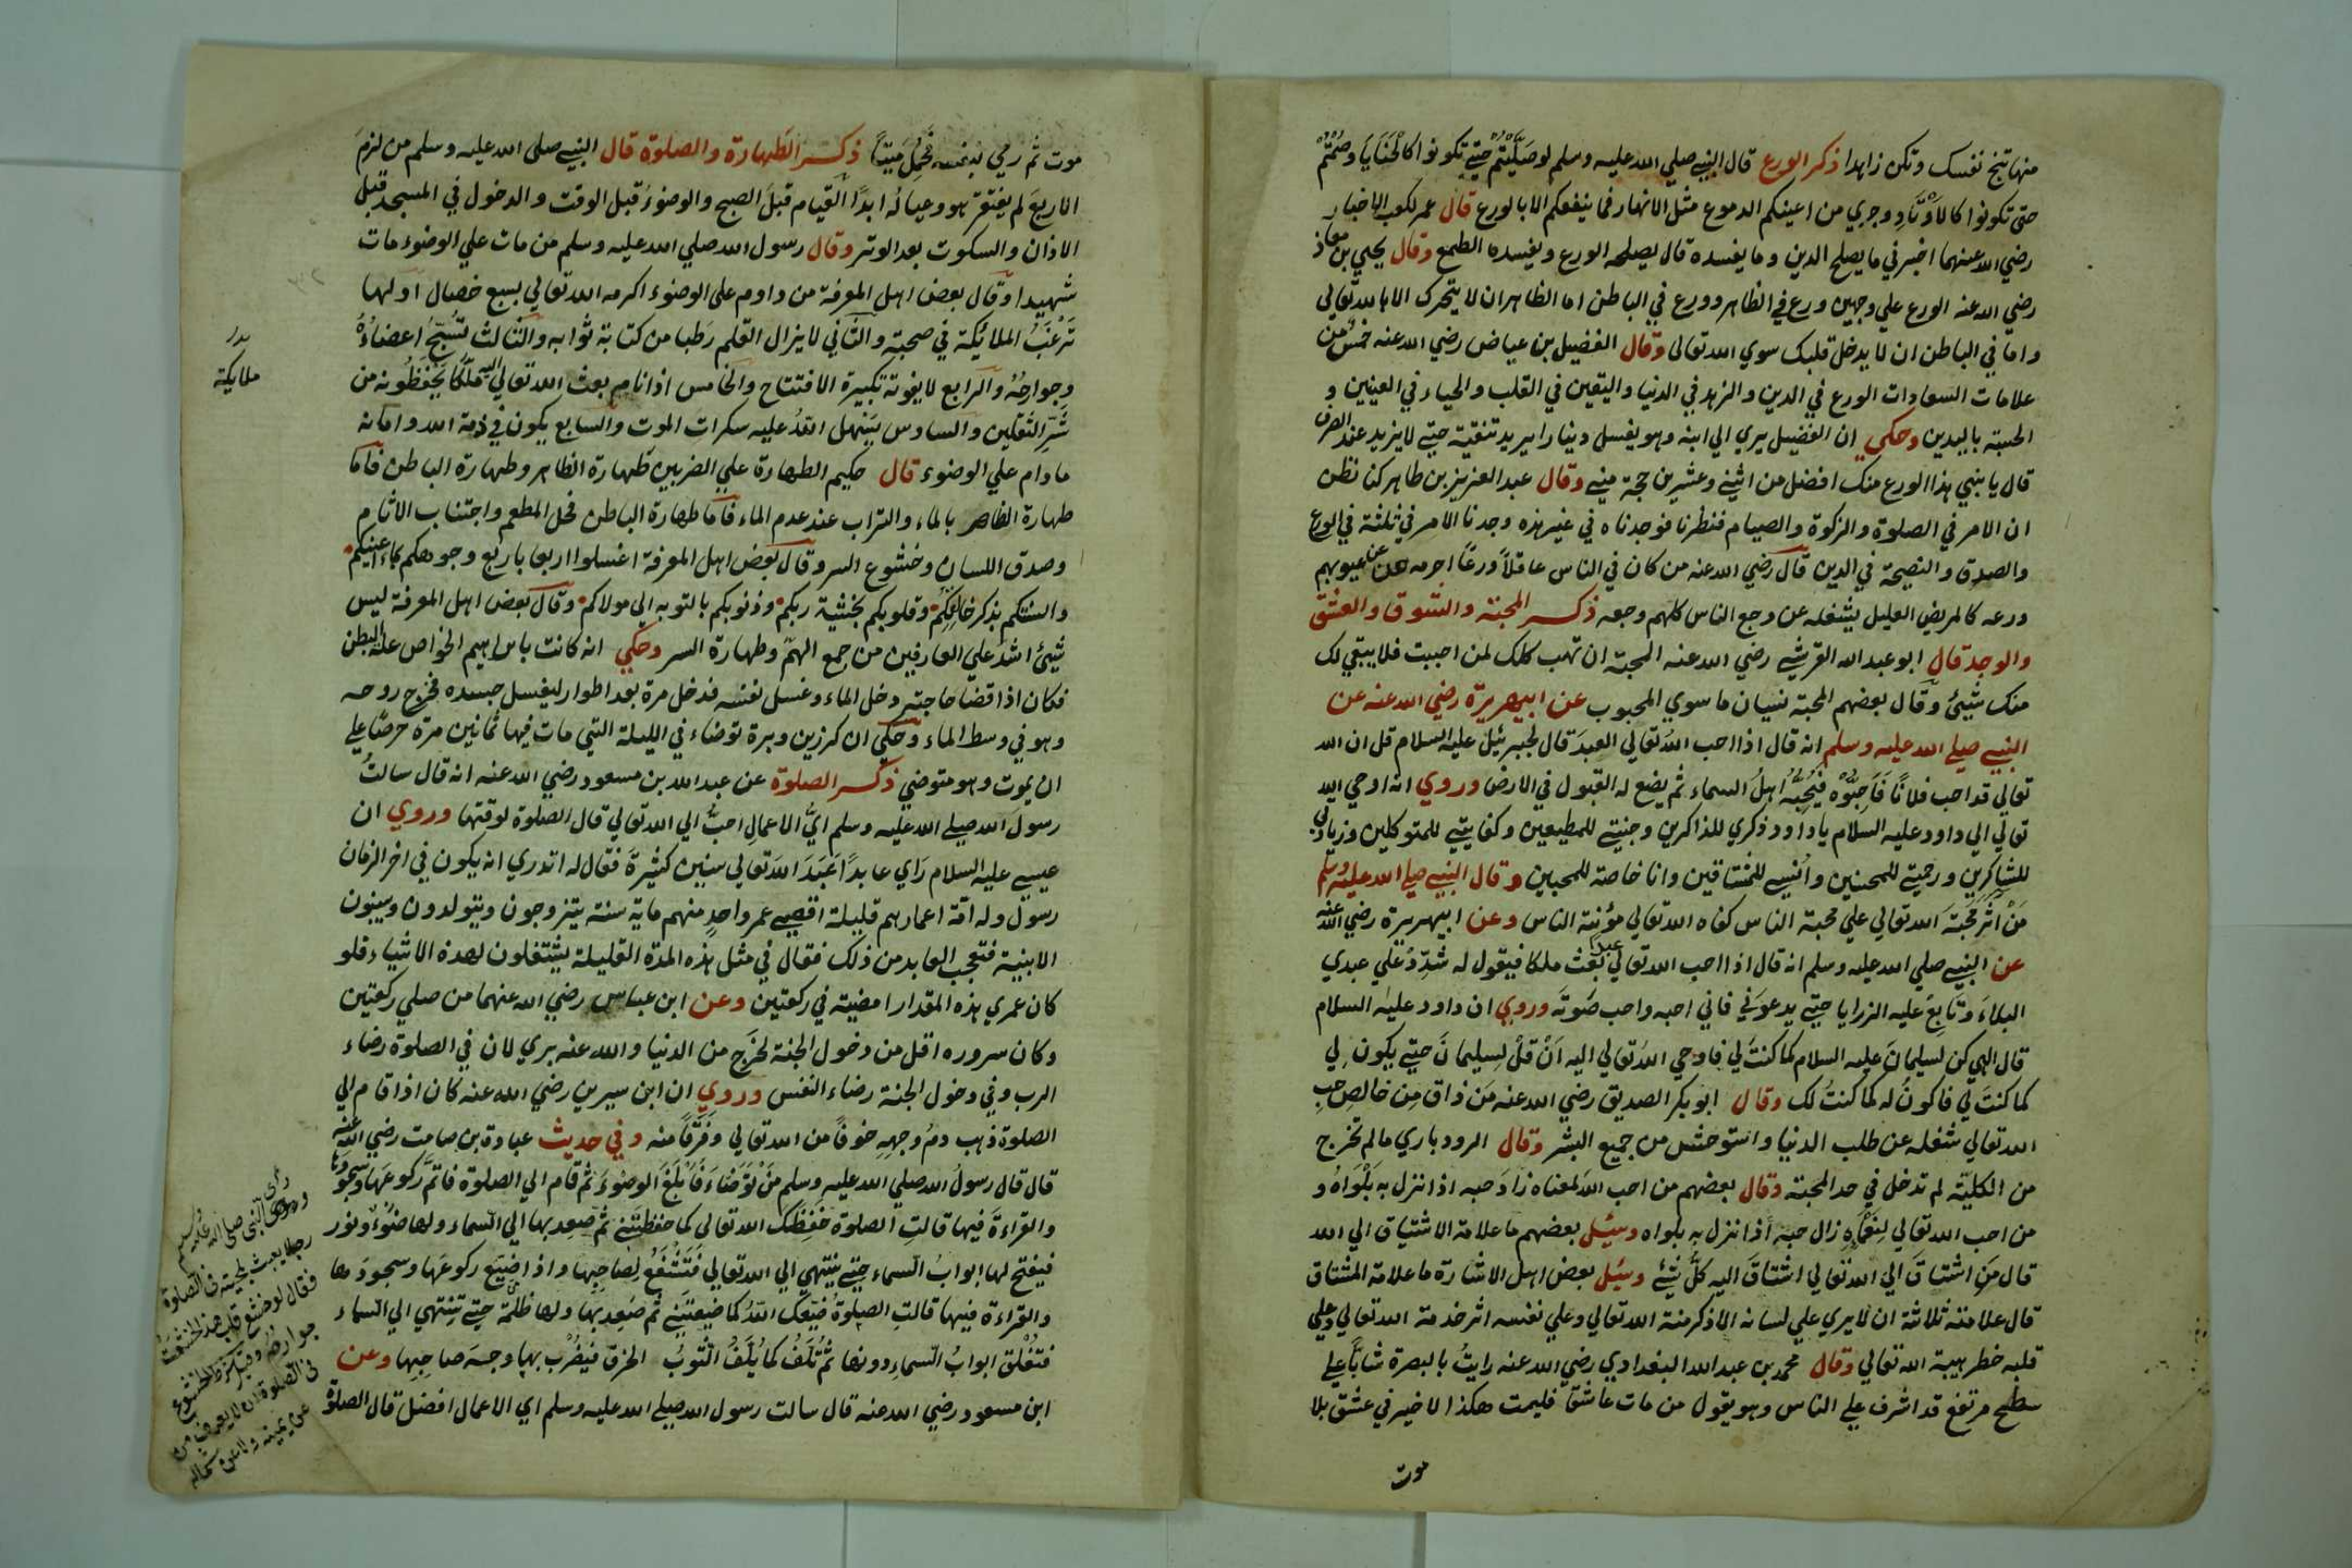 منها تنج نفسك وتكن زاهدا ذكر الورع قال النبي صلي الله عليه وسلم لو صَلَّيْتُم حتي تكونوا كالحَنَايَا وصُمْتُمْ
حتى تكونوا كالأَوْتَادِ وجري من اعينكم الدموع مثل الانهار فما ينفعكم الا بالورع قال عمر لكعب الاحبار
رضي الله عنهما اخبرني ما يصلح الدين وما يفسده قال يصلحه الورع ويفسده الطمع وقال يحيي بن معاذ
رضي الله عنه الورع علي وجهين ورع في الظاهر وورع في الباطن اما الظاهر ان لا يتحرك الا بالله تعالى
واما في الباطن ان لا يدخل قلبك سوي الله تعالى وقال الفضيل بن عياض رضي الله عنه خمس من
علامات السعادات الورع في الدين والزهد في الدنيا واليقين في القلب والحياء في العينين و
الحسبة باليدين وحكي ان الفضيل يري الي ابنه وهو يغسل دينارا يريد تنقيته حتي لا يزيد عند الصرف
قال يا بني هذا الورع منك افضل من اثني وعشرين حجة مني وقال عبد العزيز بن طاهر كنا نظن
ان الامر في الصلوة والزكوة والصيام فنظرنا فوجدناه في غير هذه وجدنا الامر في ثلثة في الورع
والصدق والنصيحة في الدين قال رضي الله عنه من كان في الناس عاقلاً ورعًا اخرسه عن عيوبهم
ورعه كالمريض العليل يشغله عن وجع الناس كلهم وجعه ذكر المحبة والشوق والعشق
والوجد قال ابو عبد الله القرشي رضي الله عنه المحبة ان تهب كلك لمن احببت فلا يبقي لك
منك شيئ وقال بعضهم المحبة نسيان ما سوي المحبوب عن ابيهريرة رضي الله عنه عن
النبي صلي الله عليه وسلم انه قال اذا احب الله تعالي العبدَ قال لجبرئيل عليه السلام قل ان الله
تعالي قد احب فلانًا فَاَحِبُّوْه فَيُحِبُّهُ اهلُ السماء ثم يضع له القبول في الارض وروي انه اوحي الله
تعالي الي داود عليه السلام يا داود ذكري للذاكرين وجنتي للمطيعين وكفايتي للمتوكلين وزيادتي
للشاكرين ورحمتي للمحسنين وأنسي للمشتاقين وانا خاصة للمحبين وقال النبي صلي الله عليه وسلم
مَنْ اٰثَرَ مَحَبَّةَ الله تعالي علي محبة الناس كفاه الله تعالي مؤنة الناس وعن ابيهريرة رضي الله عنه
عن النبي صلي الله عليه وسلم انه قال اذا احب الله تعالي عبدا بعث ملكا فيقول له شَدِّدْ عَلي عبدي
البلاءَ وتَابِعْ عليه الرزايا حتي يدعوَني فاني احبه واحب صَوتَه وروي ان داود عليه السلام
قال الهي كن لسليمانَ عليه السلام كما كنتَ لي فاوحي الله تعالي اليه اَنْ قلْ لِسليمانَ حتي يكون لِي
كما كنتَ لي فاكونُ له كما كنتُ لك وقال ابو بكر الصديق رضي الله عنه مَن ذاق مِن خالِصِ حبِ
الله تعالي شغله عن طلب الدنيا واستوحش من جميع البشر وقال الرودباري ما لم تخرج
من الكليّة لم تدخل في حد المحبة وقال بعضهم من احب الله لمعناه زادَ حبه اذا نزل به بَلْوَاهُ و
من احب الله تعالي لِنَعْمَاهِ زال حبه اذا نزل به بلواه وسئل بعضهم ما علامة الاشتياق الي الله
قال مَنِ اشتَاقَ الي الله تعالي اشتاقَ اليه كلُّ شئ وسئل بعض اهل الاشارة ما علامة المشتاق
قال علامته ثلاثة ان لا يري علي لسانه الا ذكر منة الله تعالي وعلي نفسه اثر خدمة الله تعالي وعلي
قلبه خطر هيبة الله تعالي وقال محمد بن عبد الله البغدادي رضي الله عنه رايتُ بالبصرة شابًّا علي
سطح مرتفع قد اشرف علي الناس وهو يقول من مات عاشقًا فليمت هكذا لا خير في عشق بلا
موت
موت ثم رمي بنفسه فَحُمِلَ مَيّتًا ذكر الطهارة والصلوة قال النبي صلى الله عليه وسلم من لزم
الاربعَ لم يفتقر هو وعياله ابدًا القيام قبلَ الصبح والوضوءُ قبل الوقت والدخول في المسجد قبل
الاذان والسكوت بعد الوتر وقال رسول الله صلي الله عليه وسلم من مات علي الوضوء مات
شهيدا وقال بعض اهل المعرفة من داوم على الوضوء اكرمه الله تعالي بسبع خصال اولها
تَرْغَبُ الملائكة في صحبته والثاني لا يزال القلم رَطبا من كتابة ثوابه والثالث تُسَبِّحُ اعضاؤُهُ
وجوارحُهُ والرابع لا يفوته تكبيرة الافتتاح والخامس اذا نام بعث الله تعالي اليه ملَكًا يَحْفَظُونه من
شَرِّ الثقلين والسادس يُسَهِّل اللهُ عليه سكرات الموت والسابع يكون في ذمة الله وامانه
ما دام علي الوضوء قال حكيم الطهارة علي الضربين طهارة الظاهر وطهارة الباطن فاما
طهارة الظاهر بالماء والتراب عند عدم الماء فاما طهارة الباطن فحل المطعم واجتناب الاثام
وصدق اللسان وخشوع السر وقال بعض اهل المعرفة اغسلوا اربعا باربع وجوهكم بماء اعينكم
والسنتكم بذكر خالقكم وقلوبكم بخشية ربكم وذنوبكم بالتوبه الي مولاكم وقال بعض اهل المعرفة ليس
شيئ اشدُ علي العارفين من جمع الهمّ وطهارة السر وحكي انه كانت باِبراهيم الخواص علة البطن
فكان اذا قضا حاجته دخل الماء وغسل نفسه فدخل مرة بعد اطوار ليغسل جسده فخرج روحه
وهو في وسط الماء وحكي ان كرز بن وبرة توضاء في الليلة التي مات فيها ثمانين مرة حرصًا علي
ان يموت وهو متوضي ذكر الصلوة عن عبد الله بن مسعود رضي الله عنه انه قال سالتُ
رسول الله صلي الله عليه وسلم ايُّ الاعمالِ احبُّ الي الله تعالي قال الصلوة لوقتها وروي ان
عيسي عليه السلام رَاي عابدًا عَبَدَ الله تعالي سنين كثيرةَ فقال له اتدري انه يكون في اخر الزمان
رسول وله امّة اعمارهم قليلة اقصي عمر واحدٍ منهم ماية سنة يتزوجون ويتولدون ويبنون
الابنية فتعجب العابد من ذلك فقال في مثل هذه المدة القليلة يشتغلون لهذه الاشياء فلو
كان عمري هذه المقدار امضيته في ركعتين وعن ابن عباس رضي الله عنهما من صلي ركعتين
وكان سروره اقل من دخول الجنة لخرج من الدنيا والله عنه بري لان في الصلوة رضاء
الرب وفي دخول الجنة رضاء النفس وروي ان ابن سيرين رضي الله عنه كان اذا قام الي
الصلوة ذهب دمُ وجهِهِ خوفًا من الله تعالي وفَرَقًا منه وفي حديث عبادة بن صامت رضي الله عنه
قال قال رسولُ الله صلي الله عليه وسلم مَنْ تَوَضّاءَ فَاَبْلَغَ الوضوءَ ثم قام الي الصلوة فاتمَّ ركوعَها وسجودَها
والقراءةَ فيها قالتِ الصلوة حَفِظَكَ الله تعالي كما حفظتَنِي ثم صَعِد بها الي السماء ولها ضوْءٌ ونور
فيفتح لها ابوابُ السماء حتي ينتهي الي الله تعالي فَتَشْفَعُ لِصاحِبِها واذا ضَيَّع ركوعَها وسجودَها
والقراءة فيها قالتِ الصلوةُ ضيّعك اللهُ كما ضيعتَنِي ثم صَعِد بها ولها ظلمة حتي تنتهي الي السماء
فتُغْلَق ابوابُ السماءِ دونها ثم تُلَفُ كما يُلَفُ الثوبُ الخرق فيضْرَب بها وجه صاحِبِها وعن
ابن مسعود رضي الله عنه قال سالت رسول الله صلي الله عليه وسلم اي الاعمال افضل قال الصلوة
ملايكة
النبي صلى الله عليه وسلم
رجلا يعبث بلحيته في الصلوة
فقال لو خشع قلب هذا لخشعت
جوارحه
في الصلوة ان لا يعرف من
عن يمينه ولا عن شماله